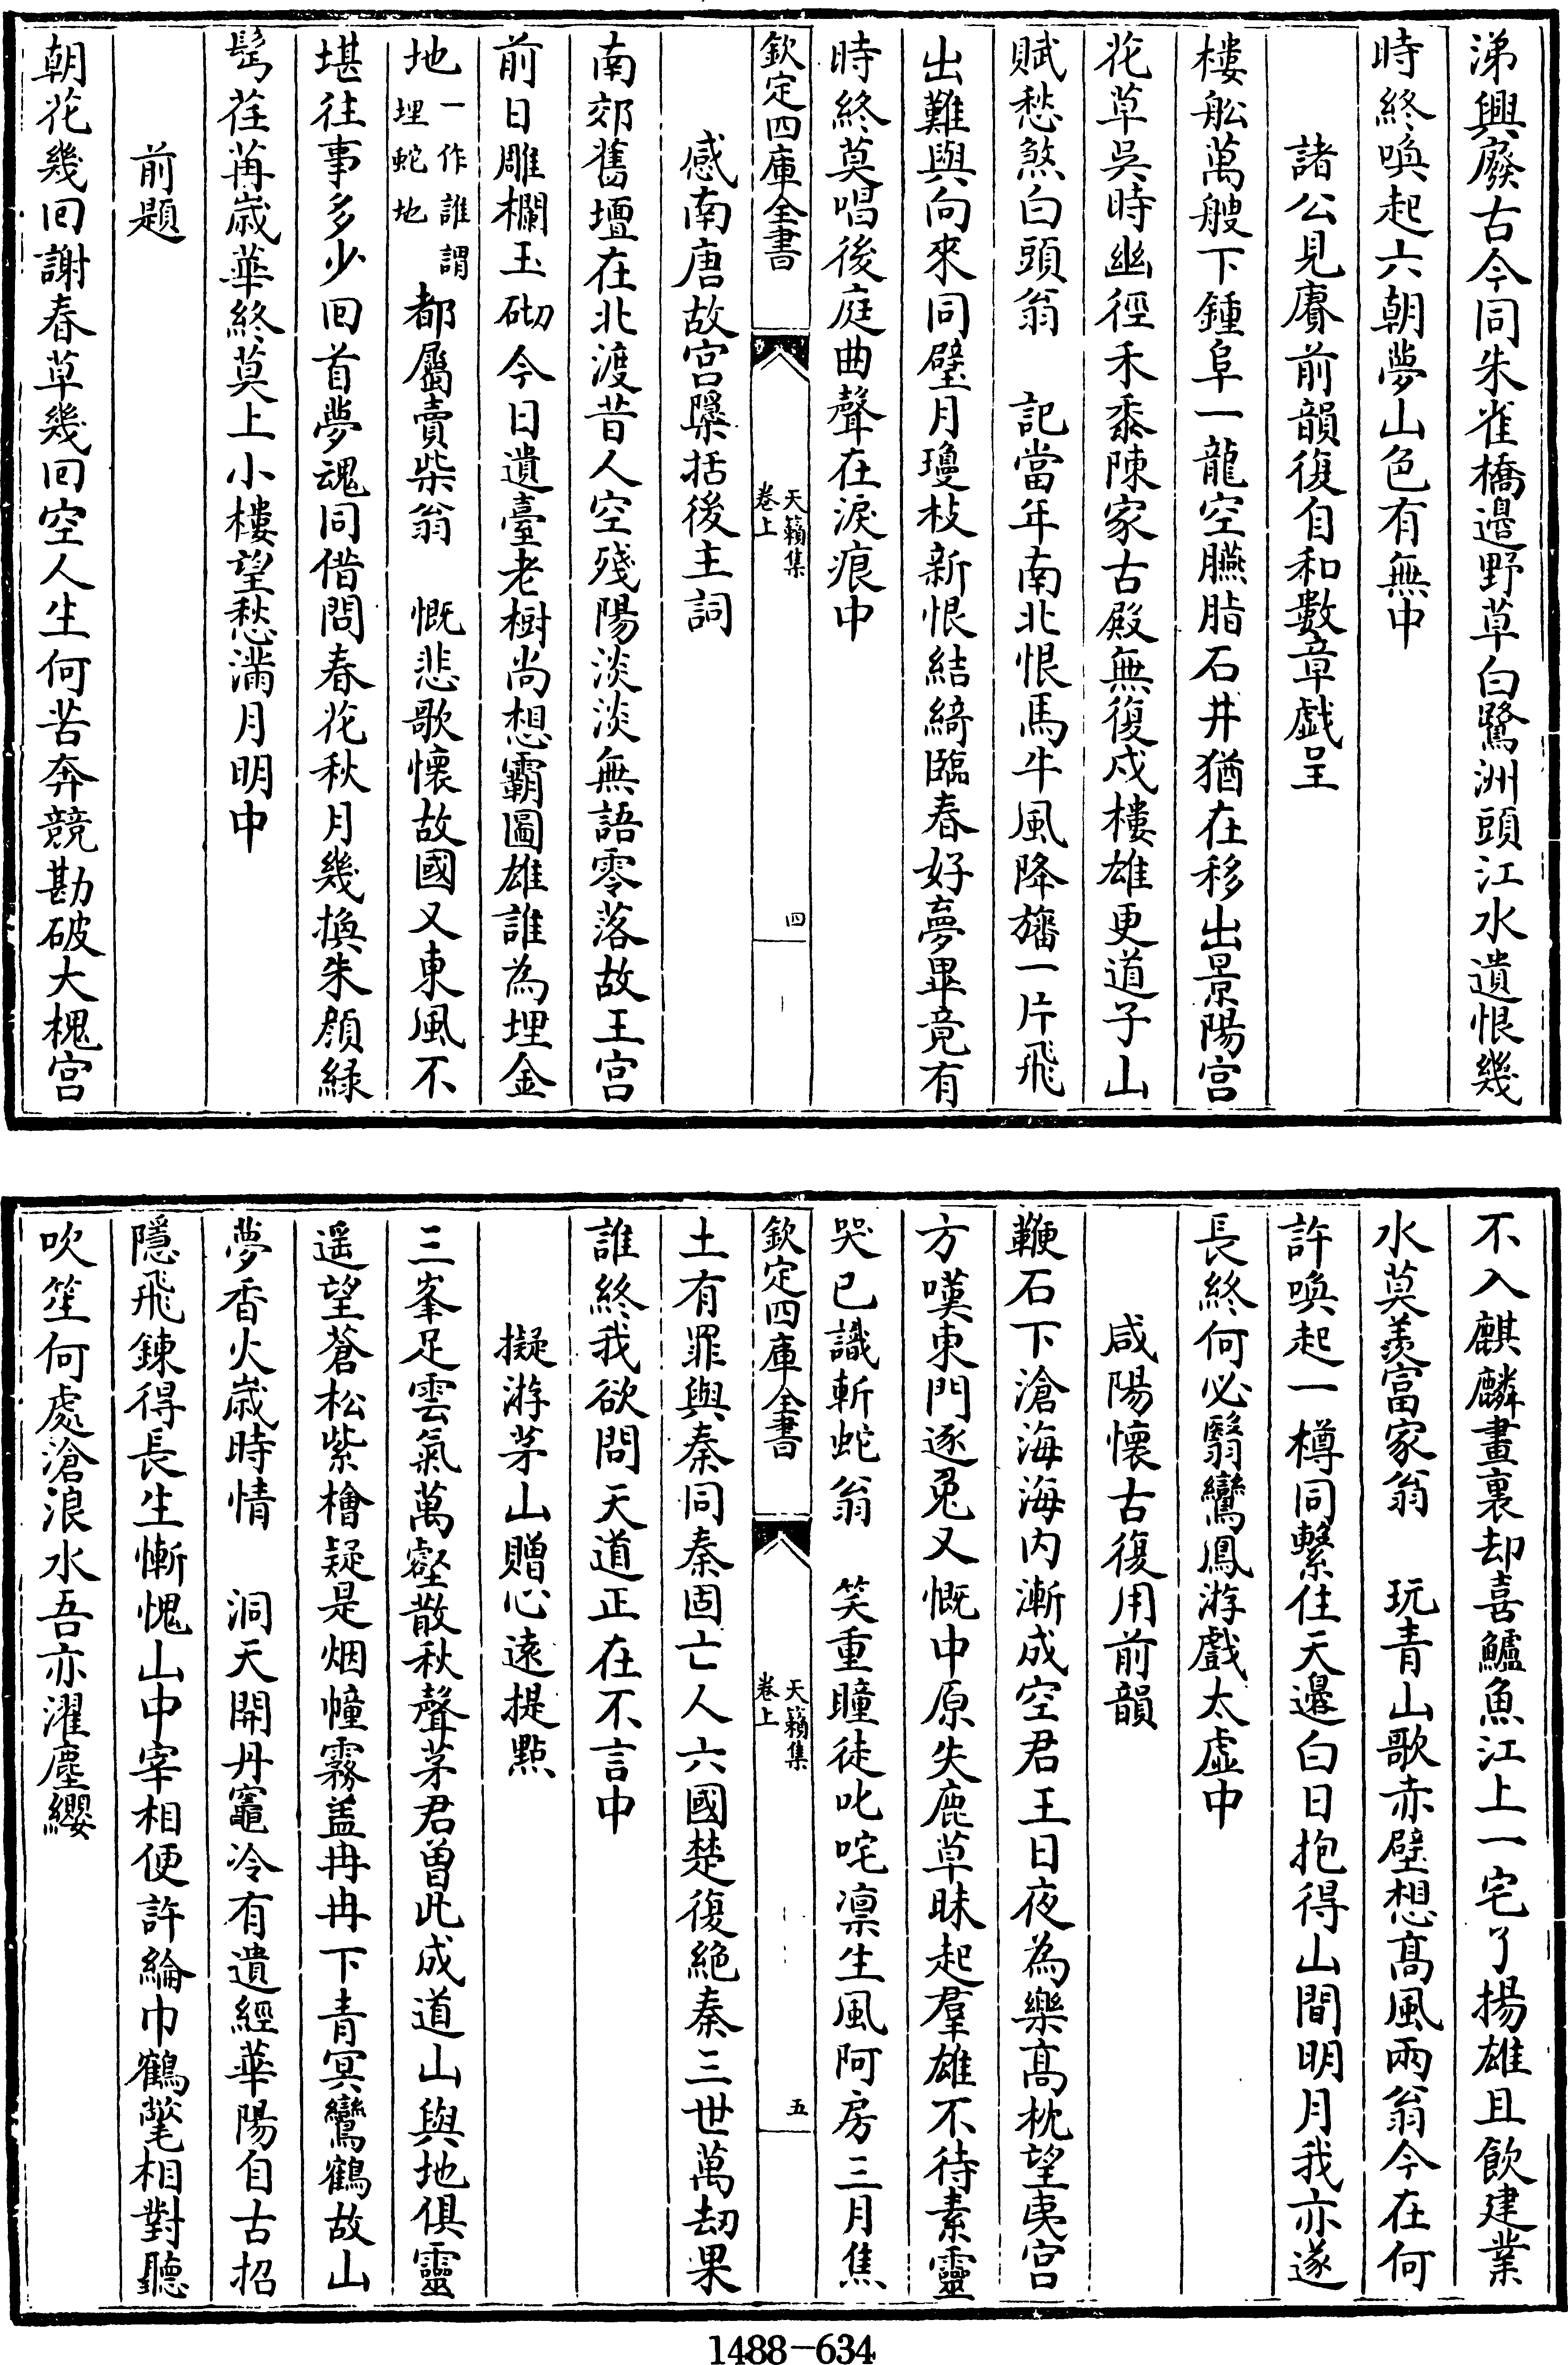 涕興廢古今同朱雀橋邉野草白鷺洲頭江水遺恨幾
時終喚起六朝夢山色有無中
諸公見賡前韻復自和數章戲呈
樓船萬艘下鍾阜一龍空臙脂石井猶在移出景陽宫
花草吳時幽徑禾黍陳家古殿無復戍樓雄更道子山
賦愁煞白頭翁　記當年南北恨馬牛風降旛一片飛
出難與向來同璧月瓊枝新恨結綺臨春好夢畢竟有
時終莫唱後庭曲聲在淚痕中
欽定四庫全書
天籟集
卷上
四
感南唐故宫檃括後主詞
南郊舊壇在北渡昔人空殘陽淡淡無語零落故王宫
前日雕欄玉砌今日遺臺老樹尚想霸圖雄誰為埋金
地
一作誰謂
埋蛇地
都屬賣柴翁　慨悲歌懷故國又東風不
堪往事多少回首夢魂同借問春花秋月幾換朱顔緑
髩荏苒歲華終莫上小樓望愁滿月明中
前題
朝花幾回謝春草幾回空人生何苦奔競勘破大槐宫
不入麒麟畫裏却喜鱸魚江上一宅了揚雄且飲建業
水莫羡富家翁　玩青山歌赤壁想髙風兩翁今在何
許喚起一樽同繫住天邉白日抱得山間明月我亦遂
長終何必翳鸞鳳游戲太虚中
咸陽懷古復用前韻
鞭石下滄海海内漸成空君王日夜為樂髙枕望夷宫
方嘆東門逐兎又慨中原失鹿草昧起羣雄不待素靈
哭已識斬蛇翁　笑重瞳徒叱咤凛生風阿房三月焦
欽定四庫全書
天籟集
卷上
五
土有罪與秦同秦固亡人六國楚復絶秦三世萬刼果
誰終我欲問天道正在不言中
擬游茅山贈心逺提㸃
三峯足雲氣萬壑散秋聲茅君曽此成道山與地俱靈
遥望蒼松紫檜疑是烟幢霧盖冉冉下青冥鸞鶴故山
夢香火歲時情　洞天開丹竈冷有遺經華陽自古招
隱飛鍊得長生慚愧山中宰相便許綸巾鶴氅相對聽
吹笙何處滄浪水吾亦濯塵纓
1488-634